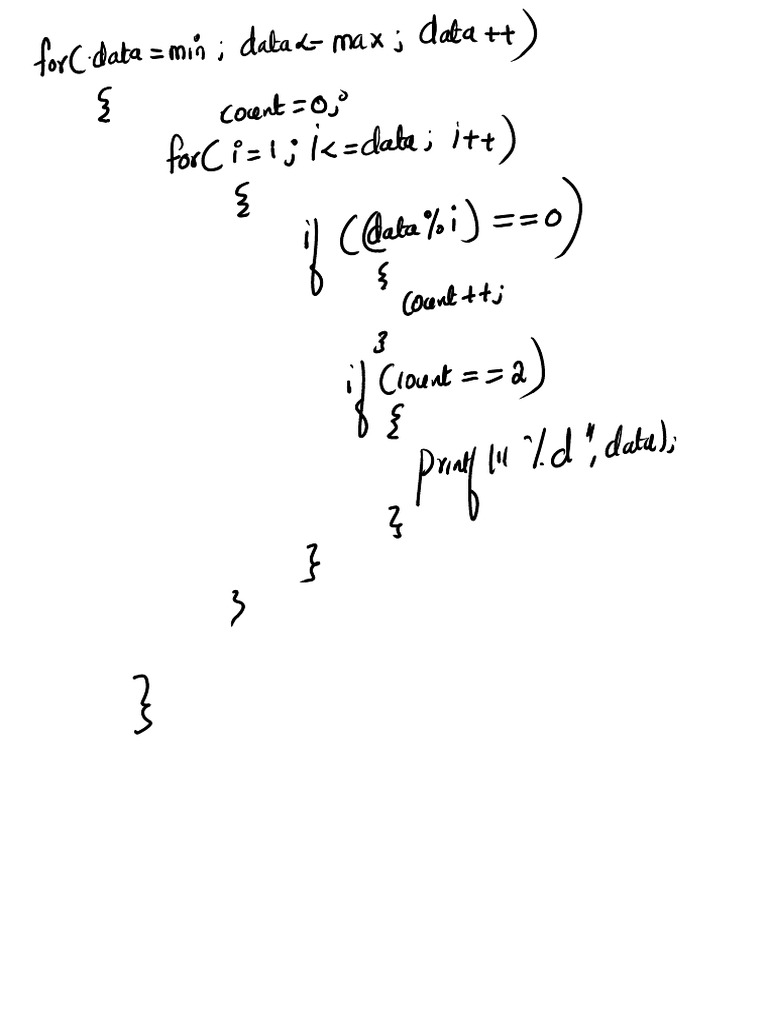 for( data=min; data<= max; data ++)
{ count=0;
for( i=1; i<=data; i++)
{
if ((data%i) ==0)
{
count++;
}
if (count ==2)
{
printf (" %d", data);
}
}
}
}